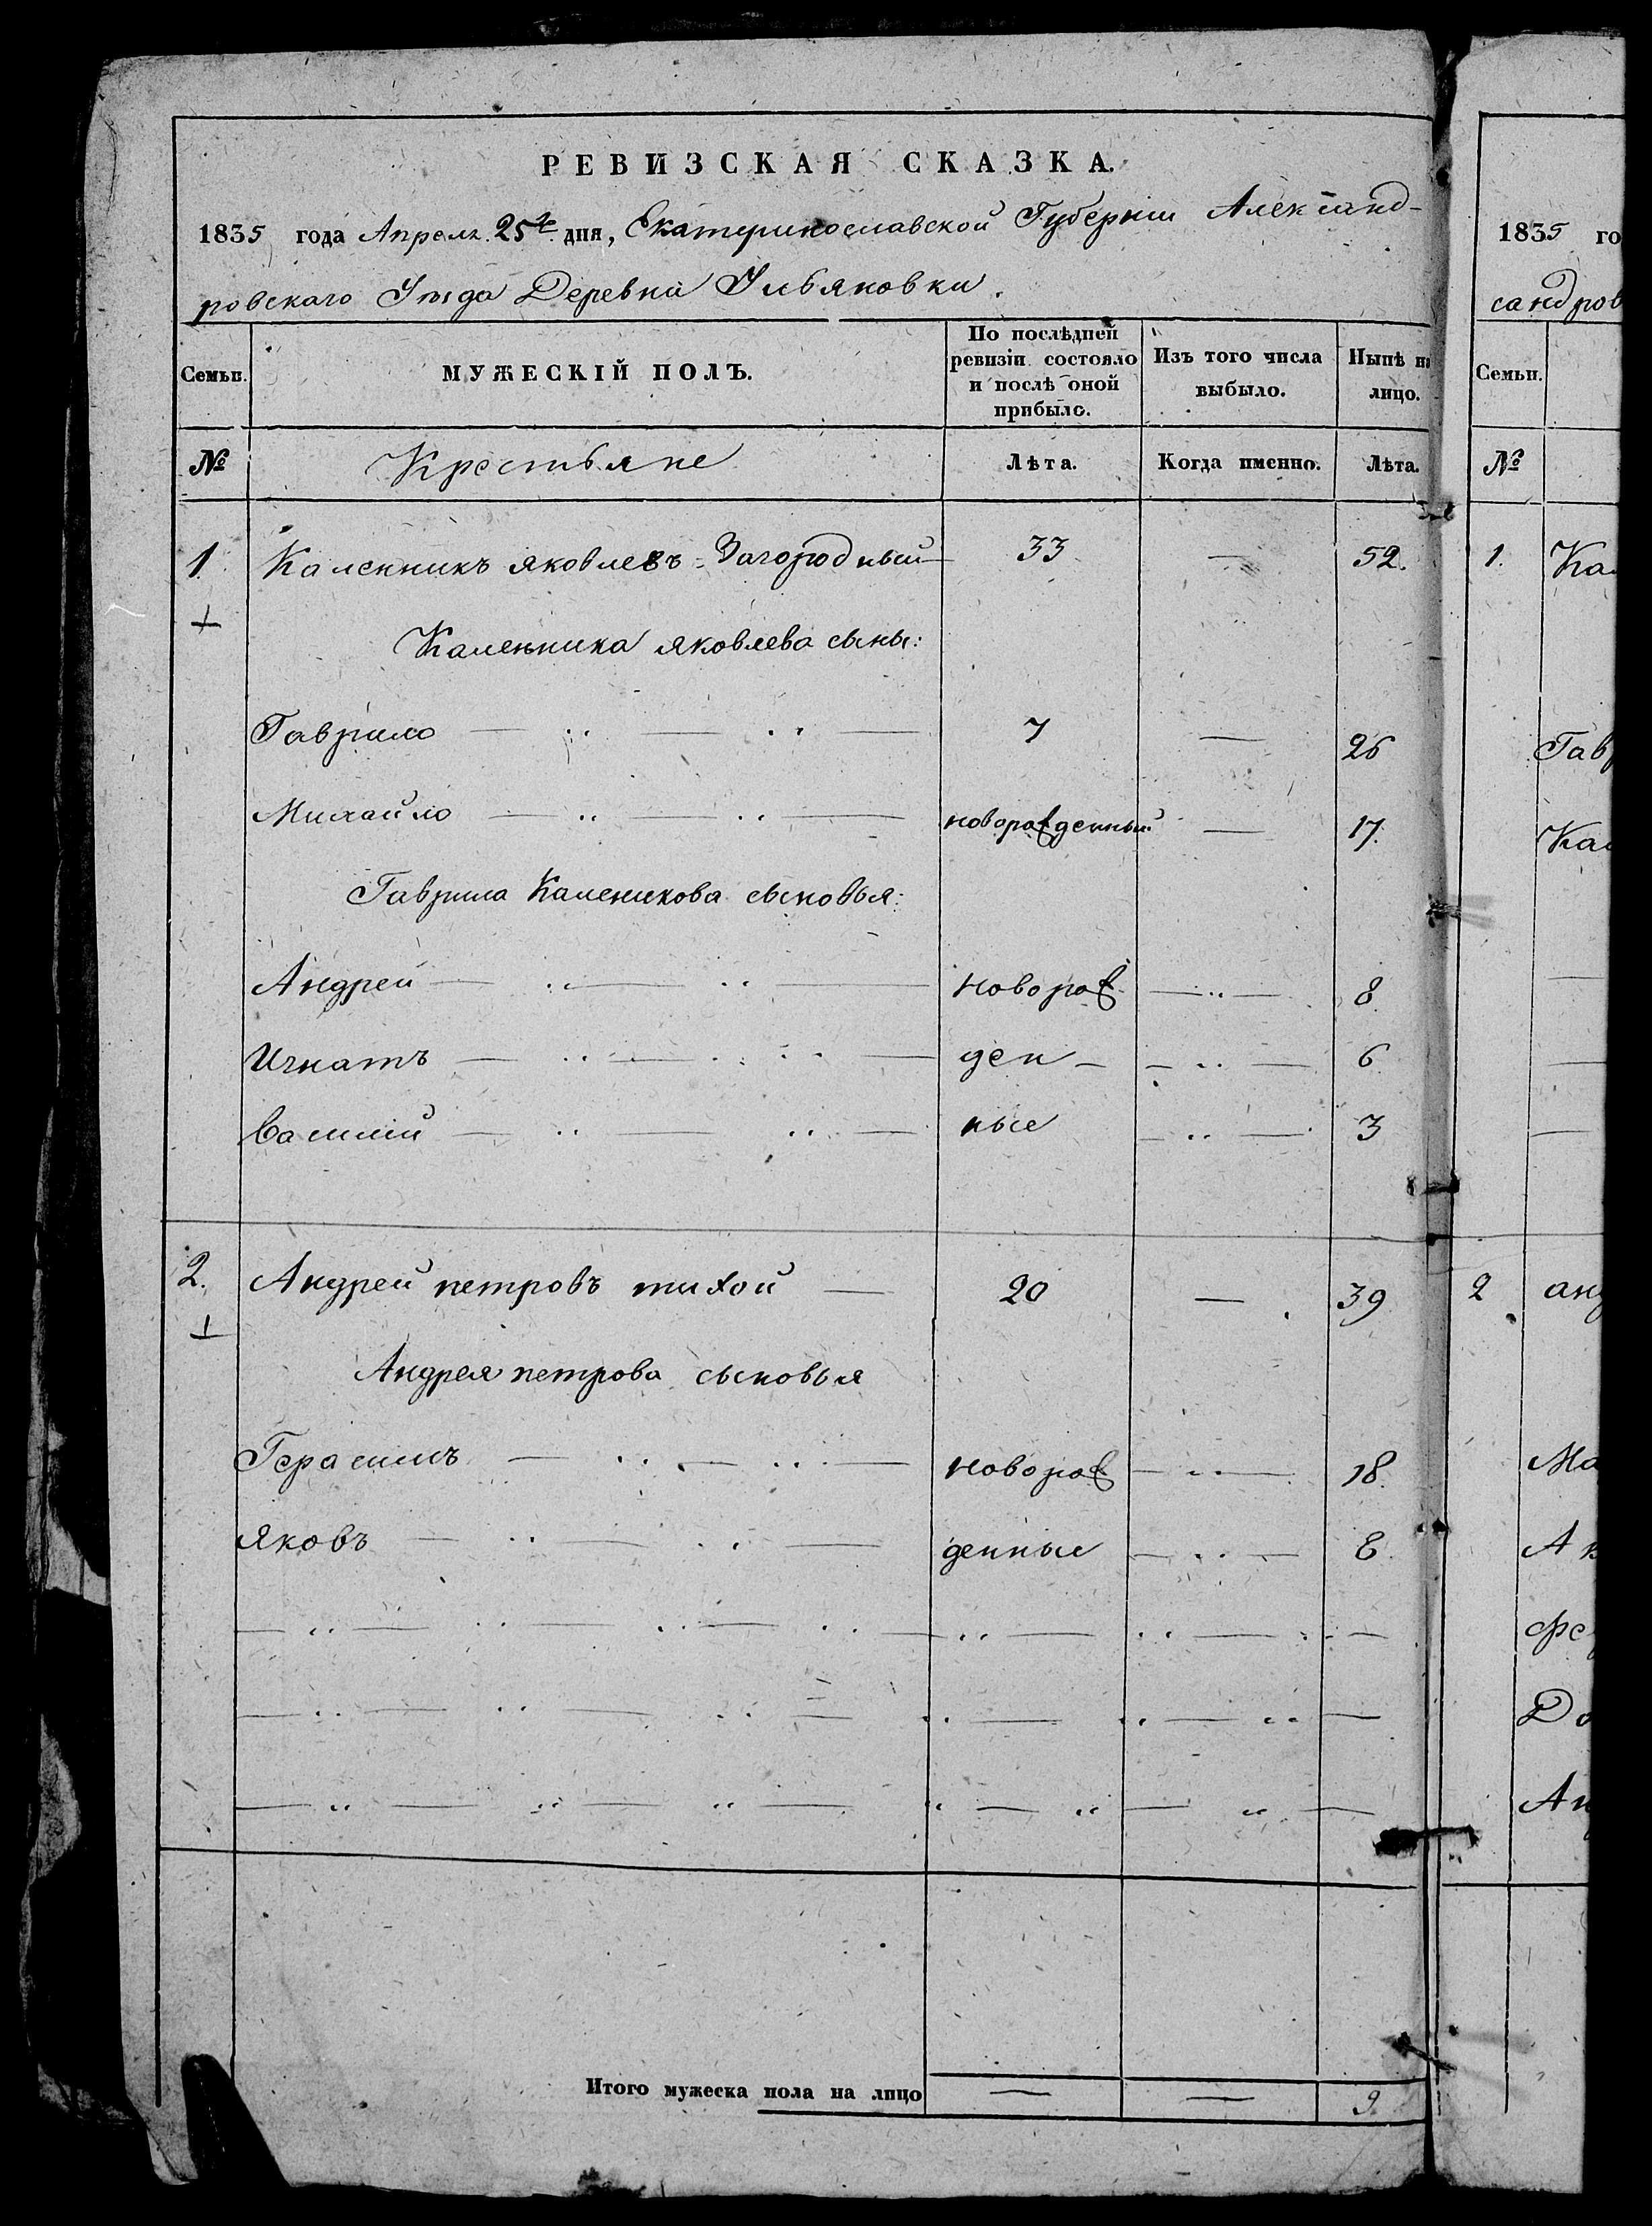 РЕВИЗСКАЯ СКАЗКА.
1835 года Апреля 25го дня, Екатеринославской Губернии Александ-
ровскаго Уѣзда Деревни Ульяновки.
Семьи. МУЖЕСКІЙ ПОЛЪ. По послѣдней ревизіи состояло и послѣ оной прибыло. Изъ того числа выбыло. Нынѣ на лицо.
№ Крестьяне Лѣта. Когда именно. Лѣта.
1. Каленникъ яковлевъ = Загородный — 33 — 52.
Каленника яковлева сыны:
Гаврило 7 — 26
Михайло новорожденный — 17.
Гаврила Каленикова сыновья:
Андрей новорож — 8.
Игнатъ ден — 6.
Василий ные — 3
2. Андрей петровъ тихой — 20 — 39
Андрея петрова сыновья
Герасимъ новорож — 18.
Яковъ денные — 8.
Итого мужеска пола на лицо — — 9.
1835 го
сандров
Семьи.
№
1. Ка
Гавр
Ка
2 анд
Ма
А
Фе
До
Ан